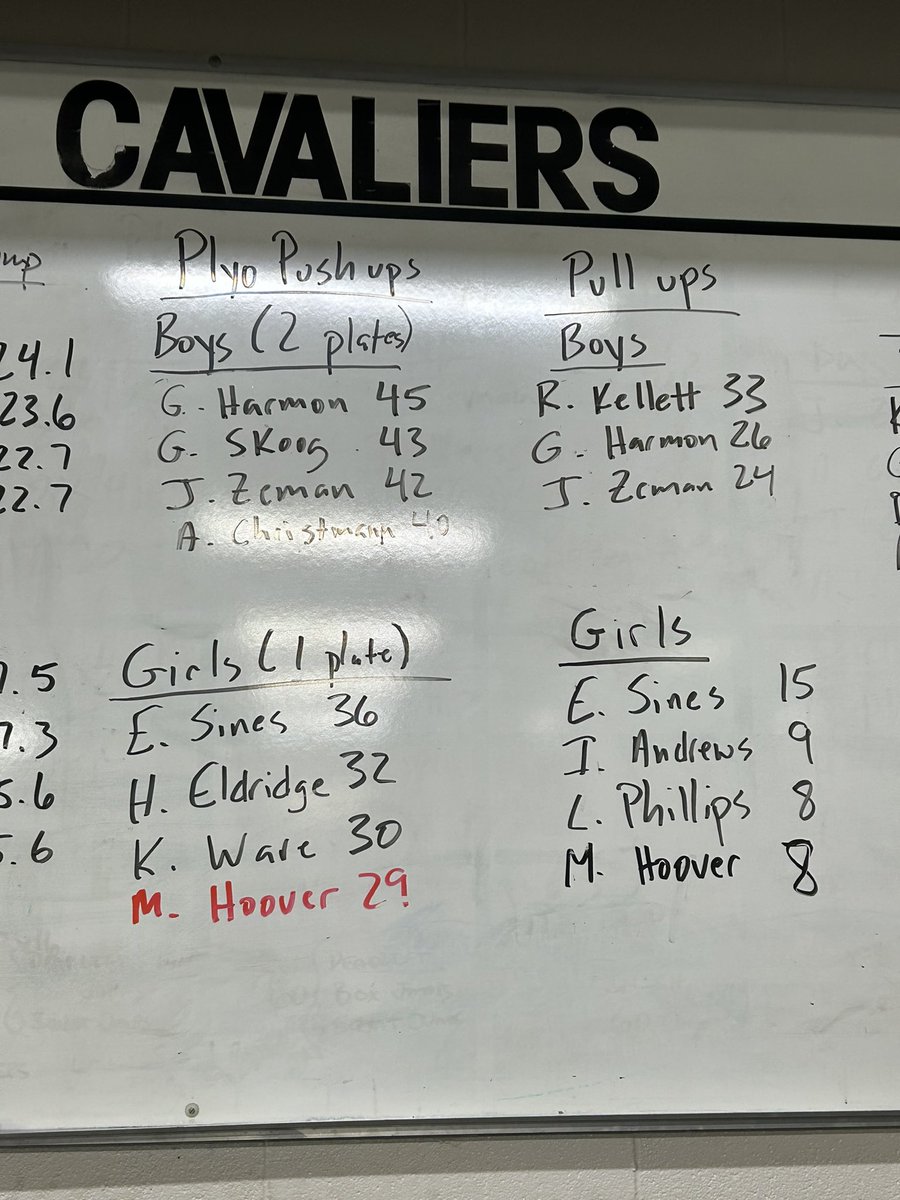 CAVALIERS
24.1
23.6
22.7
22.7
7.3
5.6
5.6
Plyo Push ups
Boys (2 plates)
G. Harmon 45
G. Skoog 43
J. Zeman 42
A. Christmann 40
Girls (1 plate)
E. Sines 36
H. Eldridge 32
K. Ware 30
M. Hoover 29
Pull ups
Boys
R. Kellett 33
G. Harmon 26
J. Zeman 24
Girls
E. Sines 15
I. Andrews 9
L. Phillips 8
M. Hoover 8